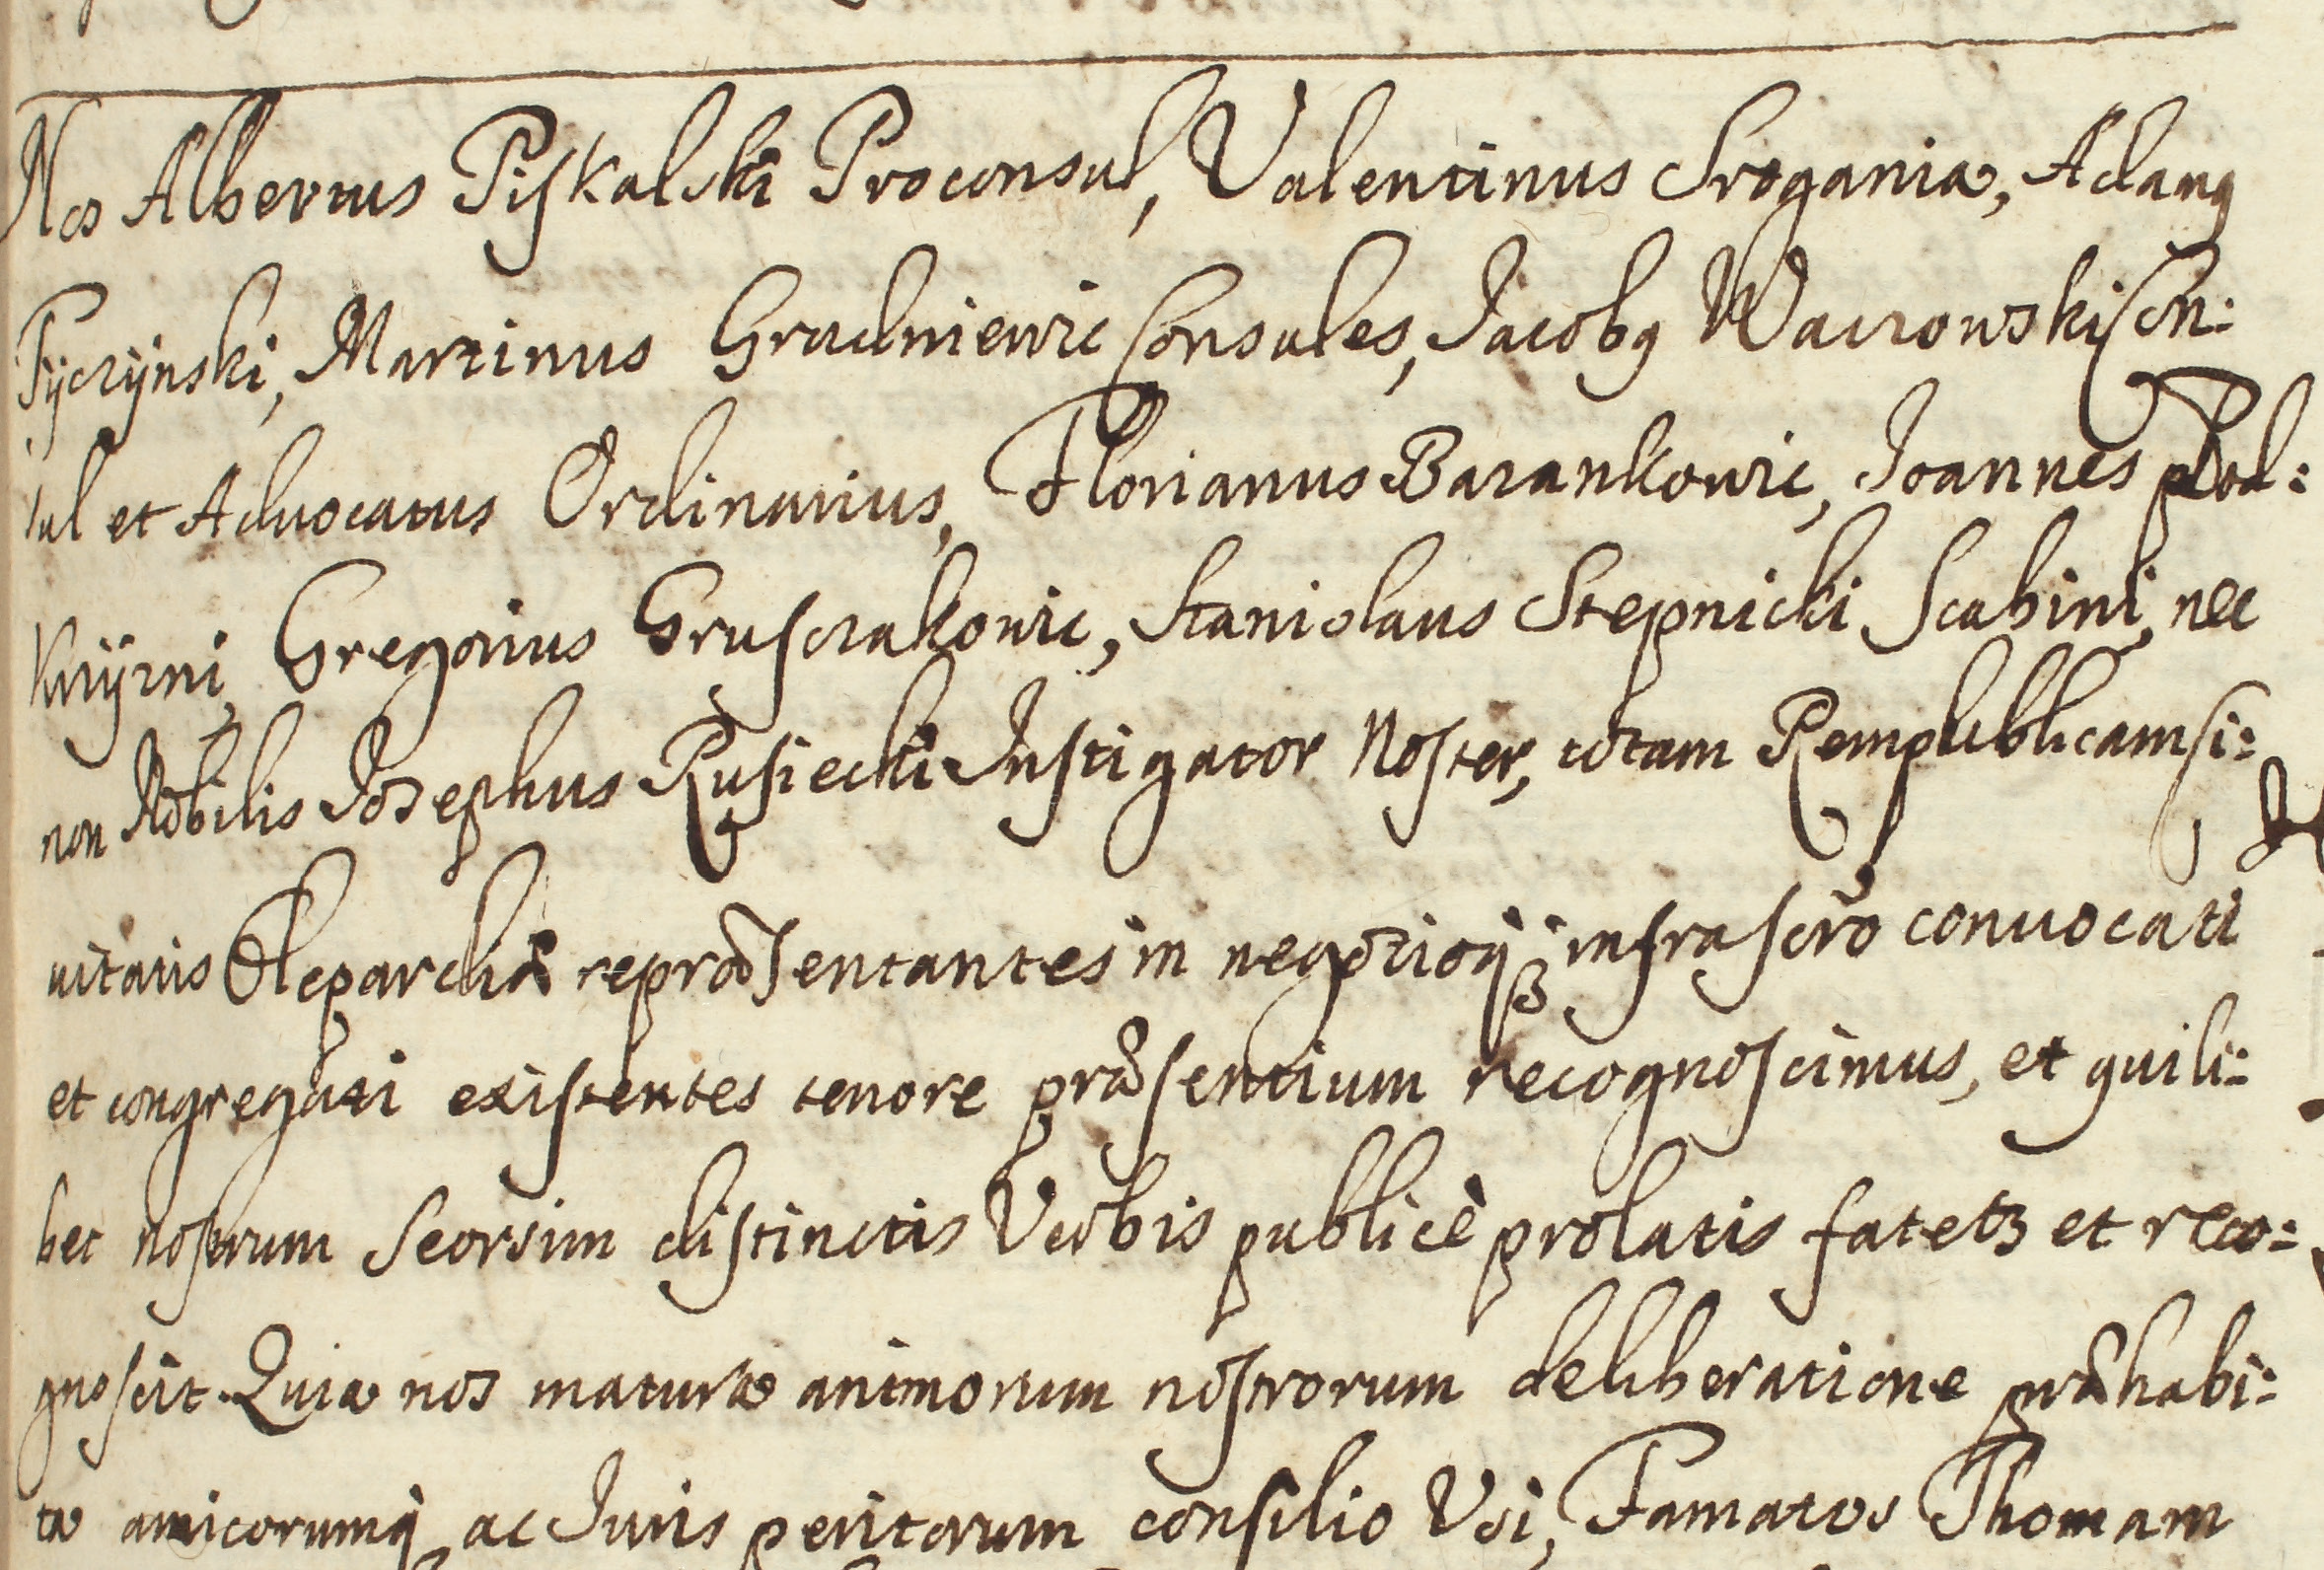 Nos Albertus Piskalski Proconsul, Valentinus Srogania, Adamꝯ
Tyczÿnski, Martinus Grudniewic Consules, Jacobꝯ Waczowski Con:
sul et Advocatus Ordinarius, Florianus Barankowic, Joannes Pod:
Gregorius Grusczakowic, Stanislaus Stepnicki Scabini, nec
non Nobilis Josephus Rusiecki Instigator Noster, totam Rempublicam Ci:
uitatis Klepardiæ repræsentantes in negotioqȝ infrascr̃o conuocati
et congregati existentes tenore præsentium recognoscimus, et quili:
bet nostrum Seorsim distinctis Verbis publicè prolatis fatetȝ et reco:
gnoscit. Quia nos matura animorum nostrorum deliberatione præhabi:
ta amicorumqȝ ac Juris peritorum consilio Vsi, Famatos Thomam